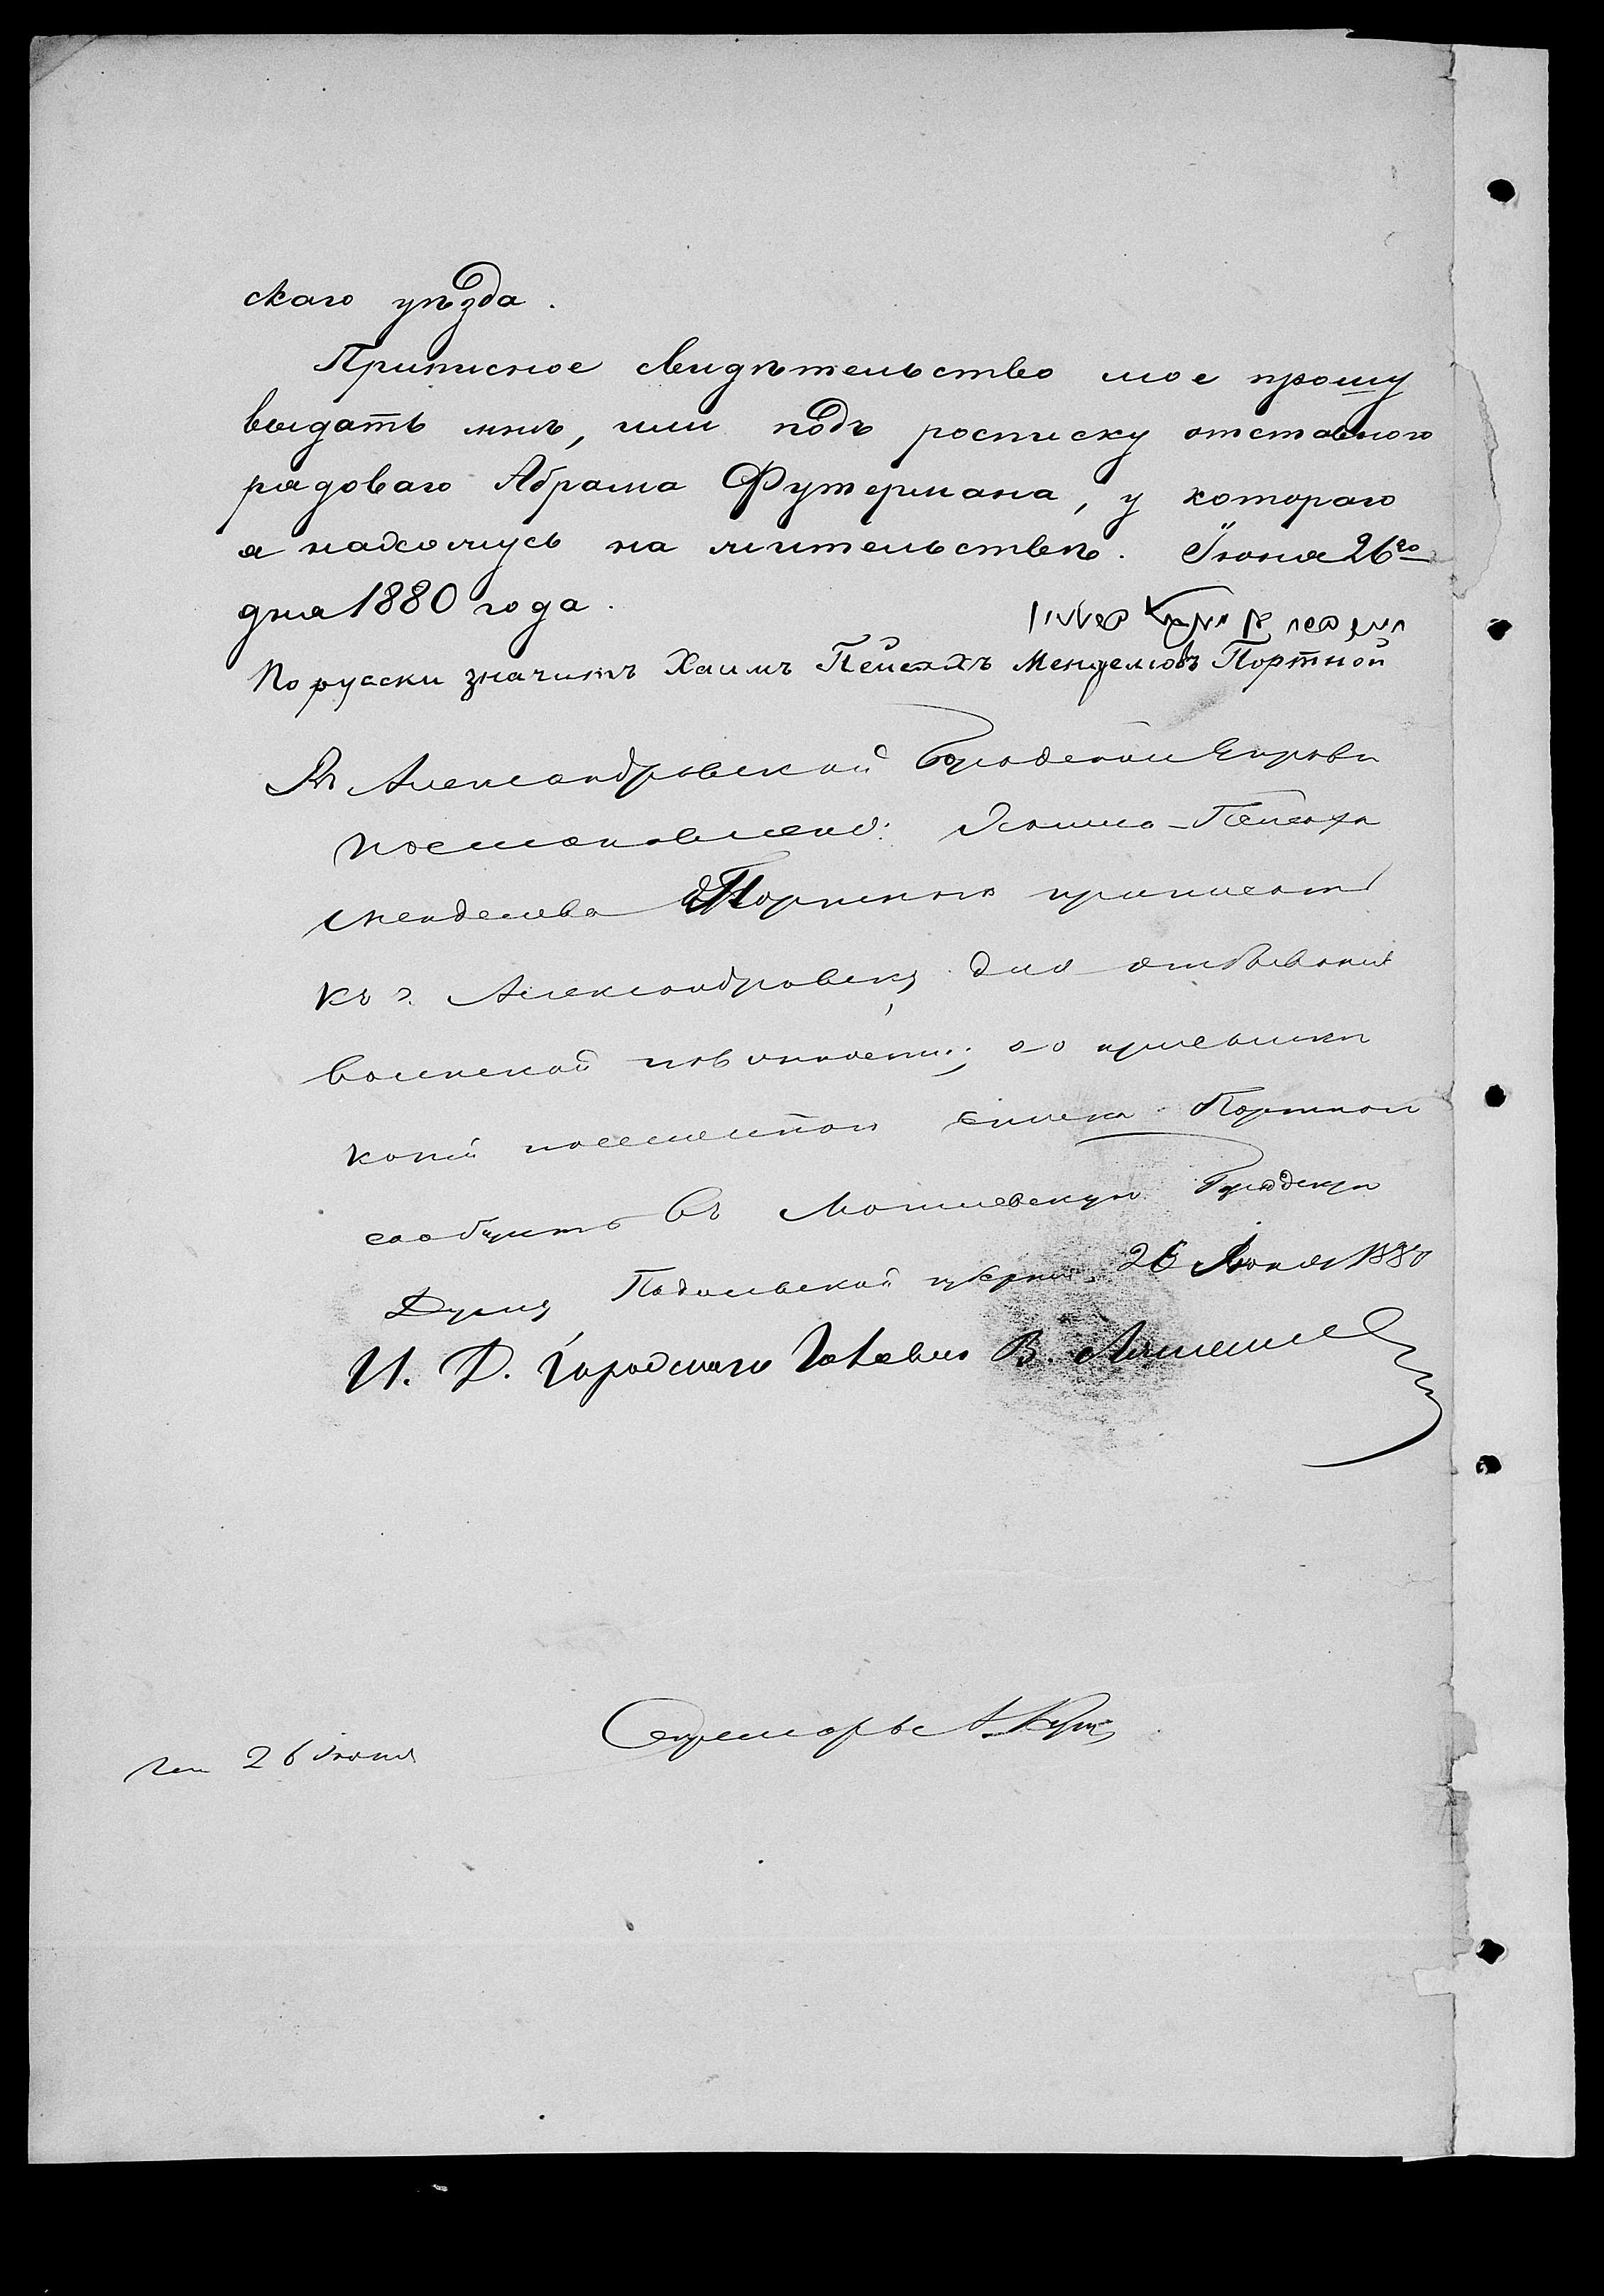 скаго уѣзда.
Приписное свидѣтельство мое прошу
выдать мнѣ, или подъ росписку отставного
рядоваго Абрама Футермана, у котораго
я нахожусь на жительствѣ. Іюня 26го
дня 1880 года.
По русски значитъ Хаимъ Пейсахъ Менделювъ Портной
Въ Александровской Городской Управѣ
постановлено: Хаима-Пейсаха
Менделева Портного приписать
къ г. Александровску для отбыванія
воинской повинности; о
копіи посемейнаго списка Портной
сообщить въ Могилевскую Городскую
Думу Подольской губерніи. 26 Іюня 1880
И. Д. Городского Головы В.
Секретарь А.
26 Іюня